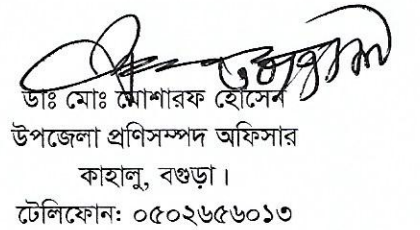 ডাঃ মোঃ মোশারফ হোসেন
উপজেলা প্রণিসম্পদ অফিসার
কাহালু, বগুড়া।
টেলিফোনঃ ০৫০২৬৫৬০১৩